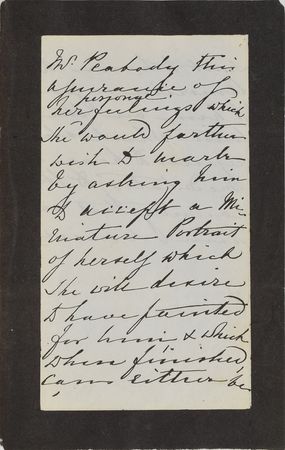 Mr. Peabody this
assurance of
personal
her feelings which
she would further
wish to mark
by asking him
to accept a Mi-
niature Portrait
of herself which
she will desire
to have painted
for him & which
when finished,
can either be